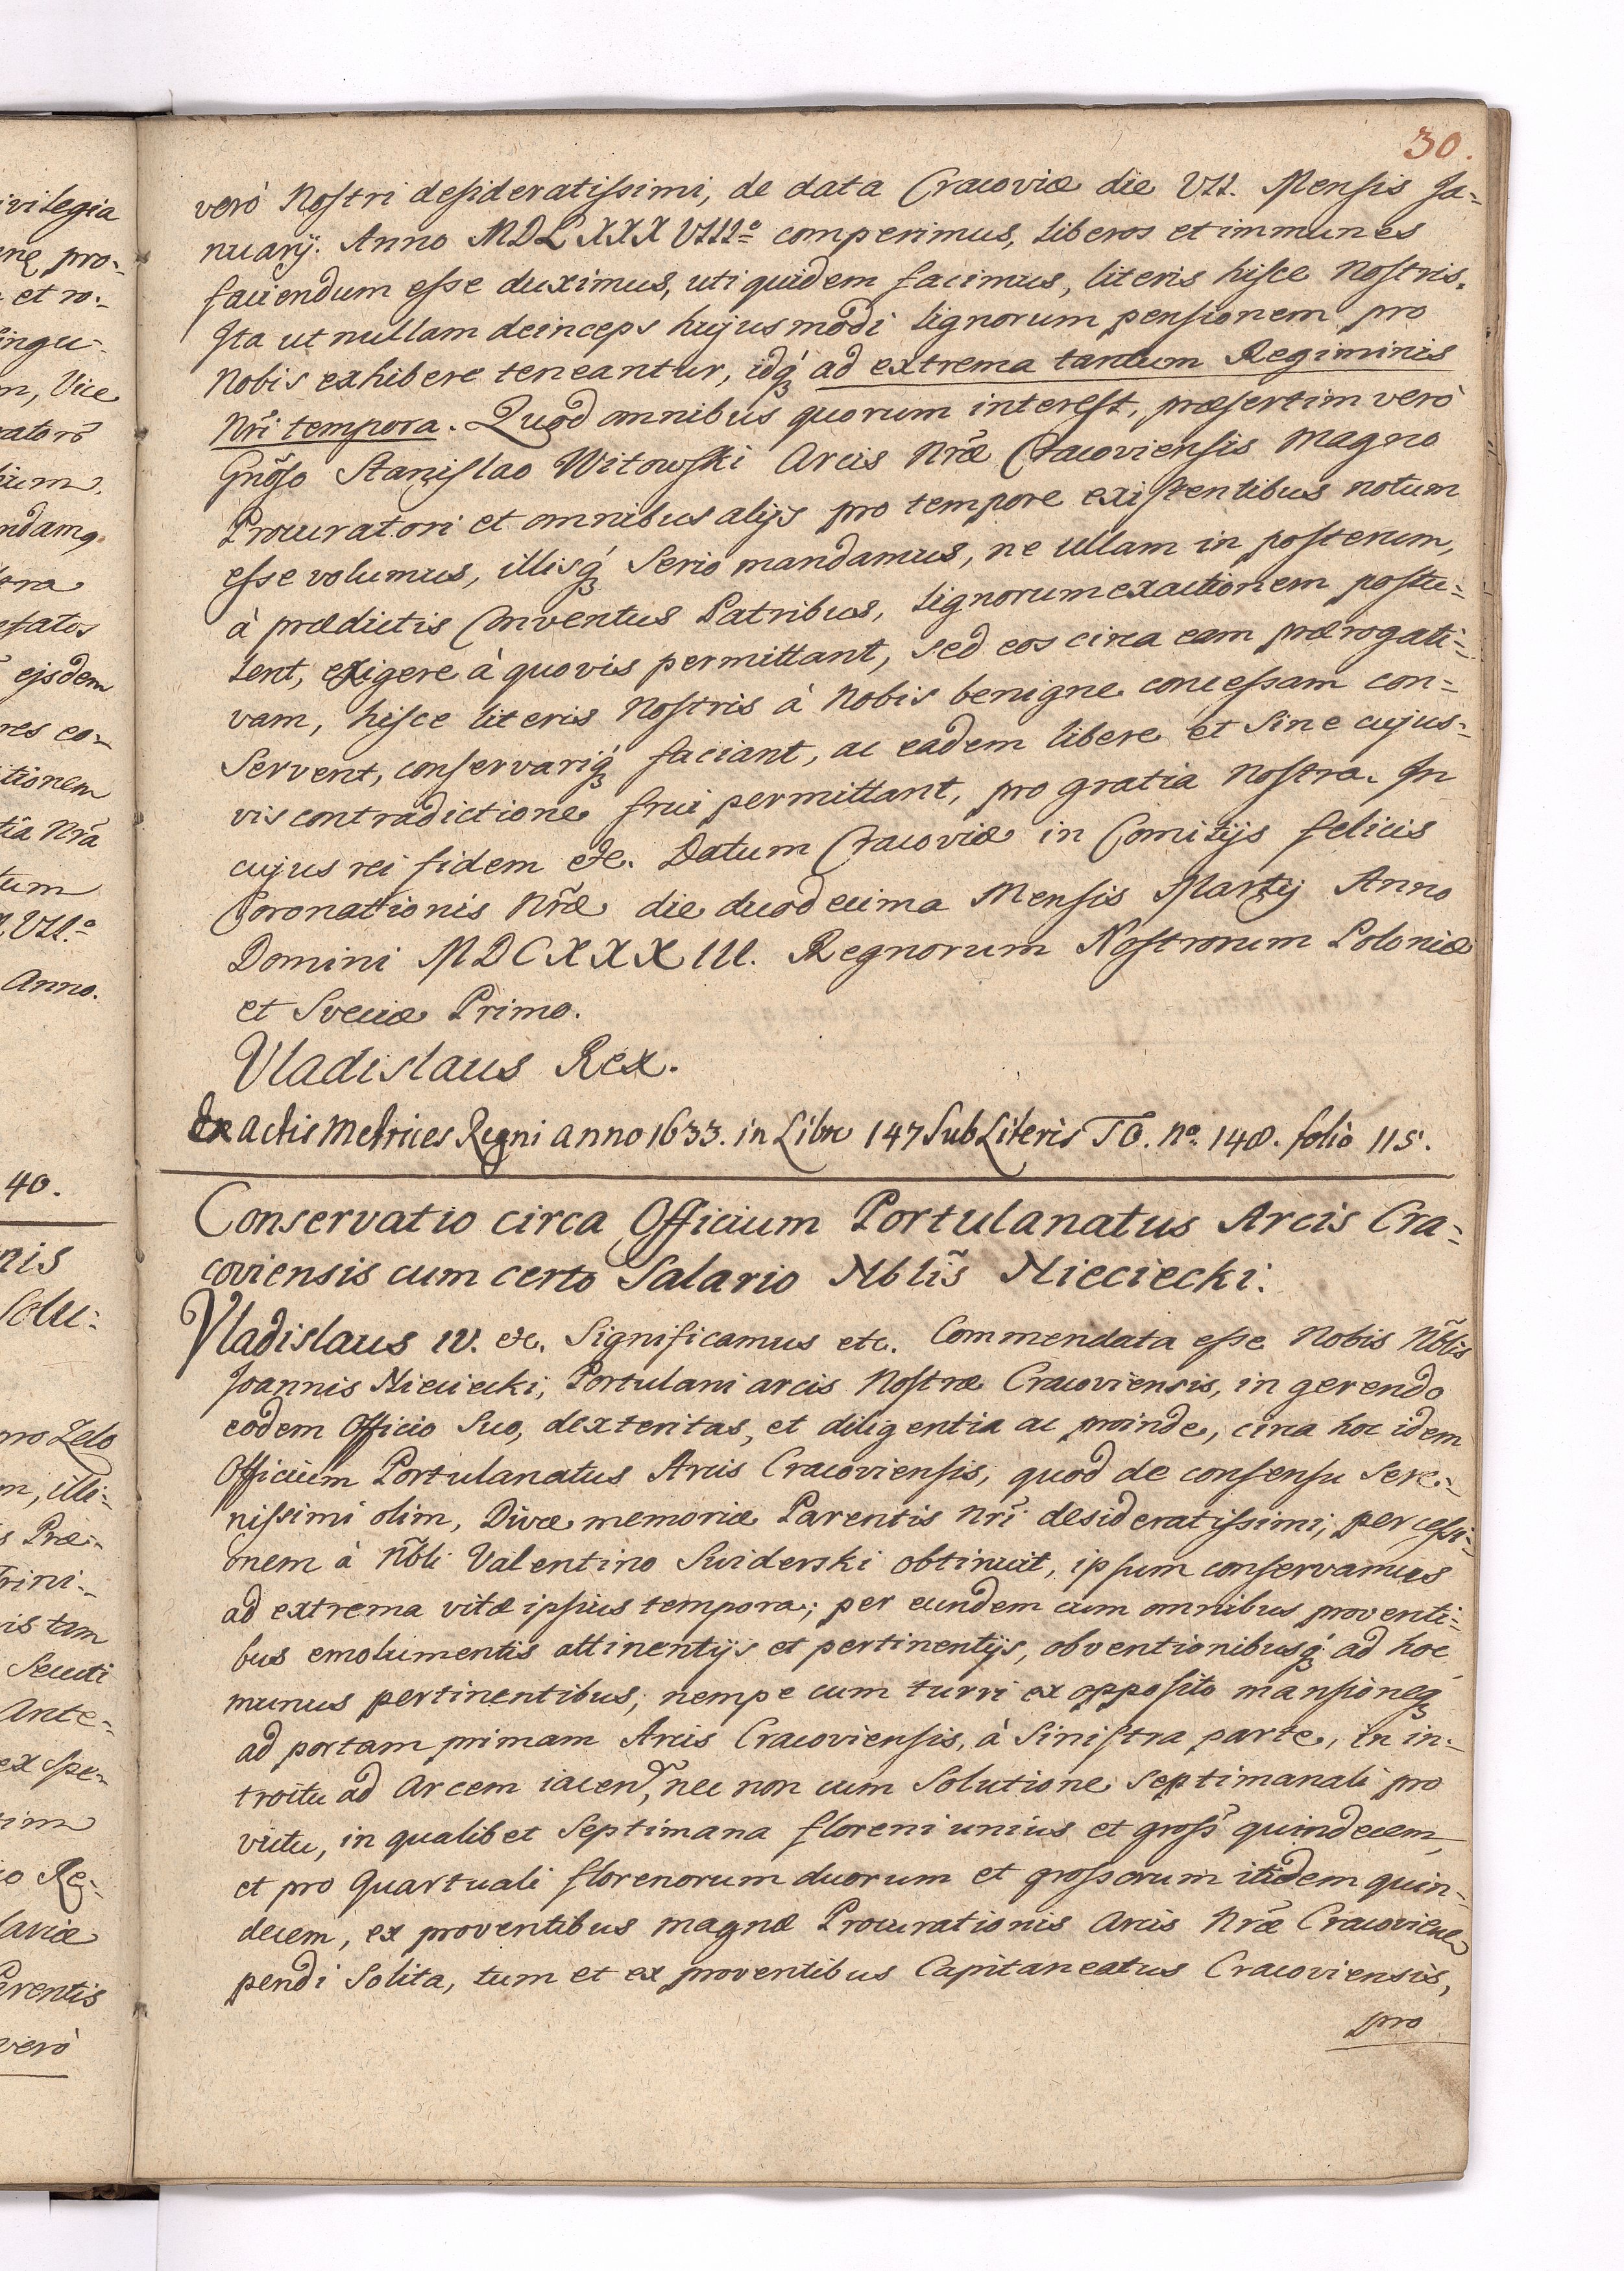 30.
verò Nostri desideratissimi, de data Cracoviæ die VII. Mensis Ja-
nuarij. Anno MDLXXXVIII.º comperimus, liberos et immunes
faciendum esse duximus, uti quidem facimus, literis hisce Nostris.
Ita ut nullam deinceps hujusmodi lignorum pensionem pro
Nobis exhibere teneantur, idq́ꝫ ad extrema tantum Regiminis
Nr̃i tempora. Quod omnibus quorum interest, præsertim verò
Gnõso Stanislao Witowski Arcis Nr̃æ Cracoviensis Magno
Procuratori et omnibus alijs pro tempore existentibus notum
esse volumus, illisq́ꝫ Serio mandamus, ne ullam in posterum,
à prædictis Conventus Patribus, lignorum exactionem postu-
lent, exigere à quovis permittant, sed eos circa eam prærogati-
vam, hisce literis Nostris à Nobis benigne concessam con-
servent, conservariq́ꝫ faciant, ac eadem libere et sine cujus-
vis contradictione frui permittant, pro gratia Nostra. In
cujus rei fidem etc. Datum Cracoviæ in Comitijs felicis
Coronationis Nr̃æ die duodecima Mensis Martij Anno
Domini MDCXXXIII. Regnorum Nostrorum Poloniæ
et Sveciæ Primo.
Vladislaus Rex.
Ex actis Metrices Regni anno 1633. in Libro 147 Sub Literis TO. Nº. 148. folio 115.
Conservatio circa Officium Portulanatus Arcis Cra-
coviensis cum certo Salario Nblĩs Nieciecki.
Vladislaus IV. etc. Significamus etc. Commendata esse Nobis Nõblis
Joannis Nieciecki, Portulani arcis Nostræ Cracoviensis, in gerendo
eodem Officio Suo, dexteritas, et diligentia ac proinde, circa hoc idem
Officium Portulanatus Arcis Cracoviensis, quod de consensu Sere-
nissimi olim, Divæ memoriæ Parentis nr̃i desideratissimi, per cessi-
onem à Nõbli Valentino Swiderski obtinuit, ipsum conservamus
ad extrema vitæ ipsius tempora; per eundem cum omnibus proventi-
bus emolumentis attinentijs et pertinentijs, obventionibusq́ꝫ ad hoc
munus pertinentibus; nempe cum turri ex opposito mansioneqꝫ
ad portam primam Arcis Cracoviensis, à Sinistra parte, in in-
troitu ad Arcem iaceñ, nec non cum Solutione Septimanali pro
victu, in qualibet Septimana floreni unius et gross̃ quindecem,
et pro Quartuali florenorum duorum et grossorum itidem quin-
decem, ex proventibus magnæ Procurationis Arcis Nr̃æ Cracovien̄
pendi Solita, tum et ex proventibus Capitaneatus Cracoviensis,
pro
ivilegia
ne pro-
et ro-
ingu-
m, Vice
ndamq
ejsdem
itionem
tia Nr̃a
tum
Anno.
40.
nis
Solu-
pro Zelo
m, illi-
Præ-
is tam
Secuti
Ante-
ex spe-
io Re-
laviæ
Parentis
verò